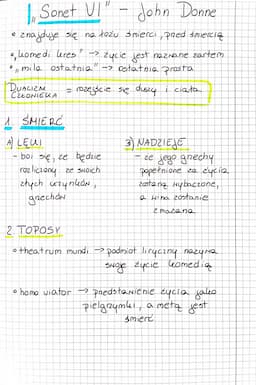 "Sonet VI" - John Donne
• znajduje się na łożu śmierci, przed śmiercią
• „komedii kres" → życie jest nazwane żartem
• „mila ostatnia" → ostatnia prosta
DUALIZM CZŁOWIEKA = rozejście się duszy i ciała
1. ŚMIERĆ
A) LĘKI
- boi się, że będzie
rozliczony ze swoich
złych uczynków,
grzechów
B) NADZIEJE
- że jego grzechy
popełnione za życia
zostaną wybaczone,
a wina zostanie
zmazana
2. TOPOSY
• theatrum mundi → podmiot liryczny nazywa
swoje życie komedią
• homo viator → przedstawienie życia jako
pielgrzymki, a metą jest
śmierć